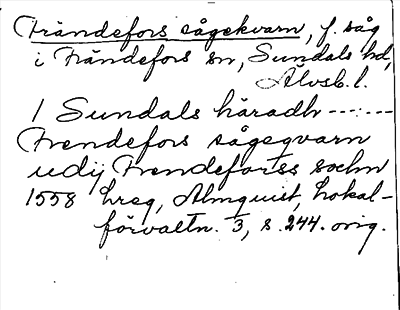 Frändefors sågekvarn, f. såg
i Frändefors sn, Sundals hd,
Älvsb. l.
I Sundals häradh ---:---
Frendefors sågeqvarn
udij Frendeforss sochn
1558 hreg, Almquist, Lokal-
förvaltn. 3, s. 244. orig.